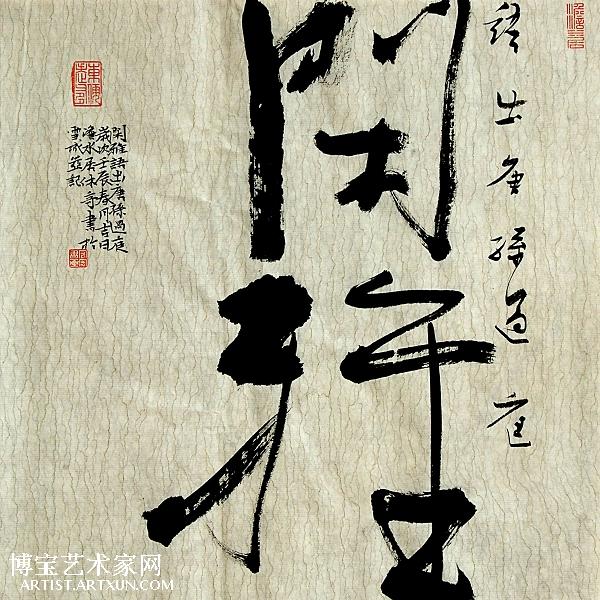 語出唐孫過庭
閑雅
閑雅語出唐孫過庭
歲次壬辰春月吉日
水居朱守書於
雪城並記
博宝艺术家网
ARTIST.ARTXUN.COM